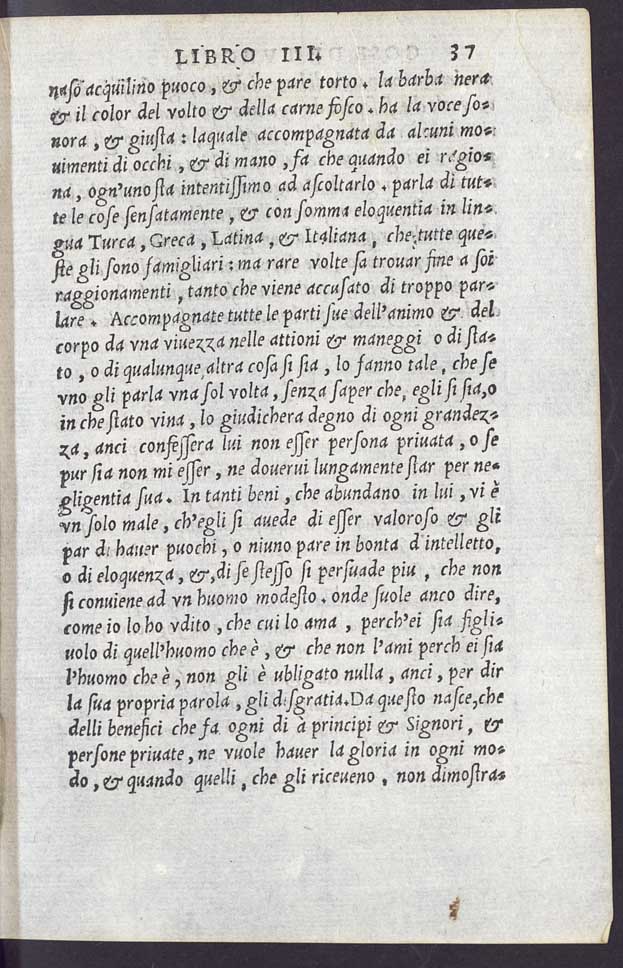 LIBRO III. 37
naso acquilino puoco, & che pare torto. la barba nera
& il color del volto & della carne fosco. ha la voce so-
nora, & giusta: laquale accompagnata da alcuni mo-
uimenti di occhi, & di mano, fa che quando ei ragio-
na, ogn'uno sta intentissimo ad ascoltarlo. parla di tut-
te le cose sensatamente, & con somma eloquentia in lin-
gua Turca, Greca, Latina, & Italiana, che tutte que-
ste gli sono famigliari: ma rare volte sa trouar fine a soi
raggionamenti, tanto che viene accusato di troppo par-
lare. Accompagnate tutte le parti sue dell'animo & del
corpo da vna viuezza nelle attioni & maneggi o di sta-
to, o di qualunque altra cosa si sia, lo fanno tale, che se
vno gli parla vna sol volta, senza saper che, egli si sia, o
in che stato viua, lo giudichera degno di ogni grandez-
za, anci confessera lui non esser persona priuata, o se
pur sia non mi esser, ne douerui lungamente star per ne-
gligentia sua. In tanti beni, che abundano in lui, vi è
vn solo male, ch'egli si auede di esser valoroso & gli
par di hauer puochi, o niuno pare in bonta d'intelletto,
o di eloquenza, &, di se stesso si persuade piu, che non
si conuiene ad vn huomo modesto. onde suole anco dire,
come io lo ho vdito, che cui lo ama, perch'ei sia figli-
uolo di quell'huomo che è, & che non l'ami perch ei sia
l'huomo che è, non gli è ubligato nulla, anci, per dir
la sua propria parola, gli disgratia. Da questo nasce, che
delli benefici che fa ogni di à principi & Signori, &
persone priuate, ne vuole hauer la gloria in ogni mo-
do, & quando quelli, che gli riceueno, non dimostra-